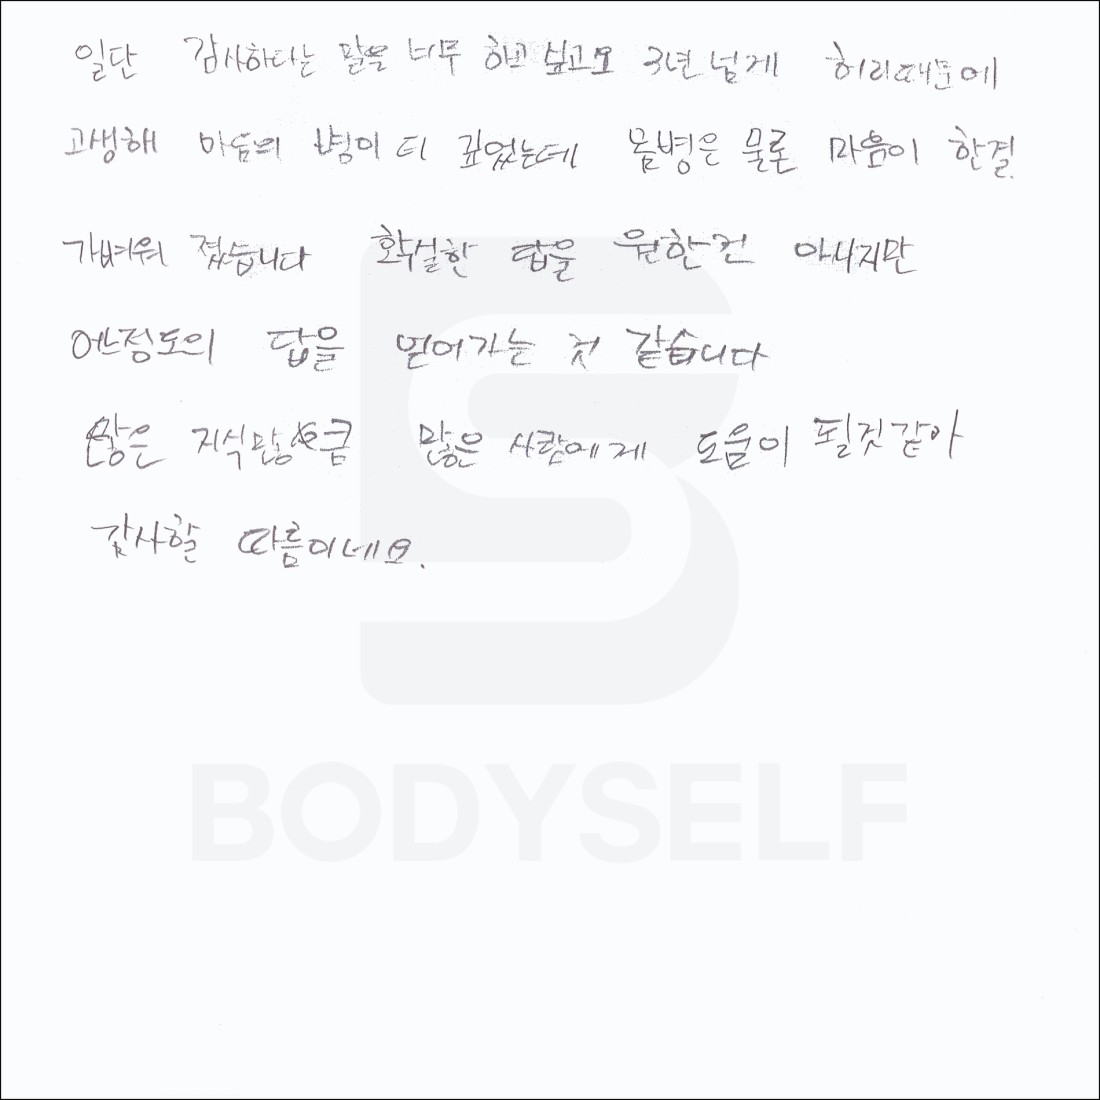 일단 감사하다는 말을 너무 하고 싶고요 3년 넘게 허리때문에
고생해 마음의 병이 더 깊었는데 몸병은 물론 마음이 한결
가벼워 졌습니다 확실한 답을 원한건 아니지만
어느정도의 답을 얻어가는 것 같습니다
많은 지식만큼 많은 사람에게 도움이 될것같아
감사할 따름이네요.
BODYSELF